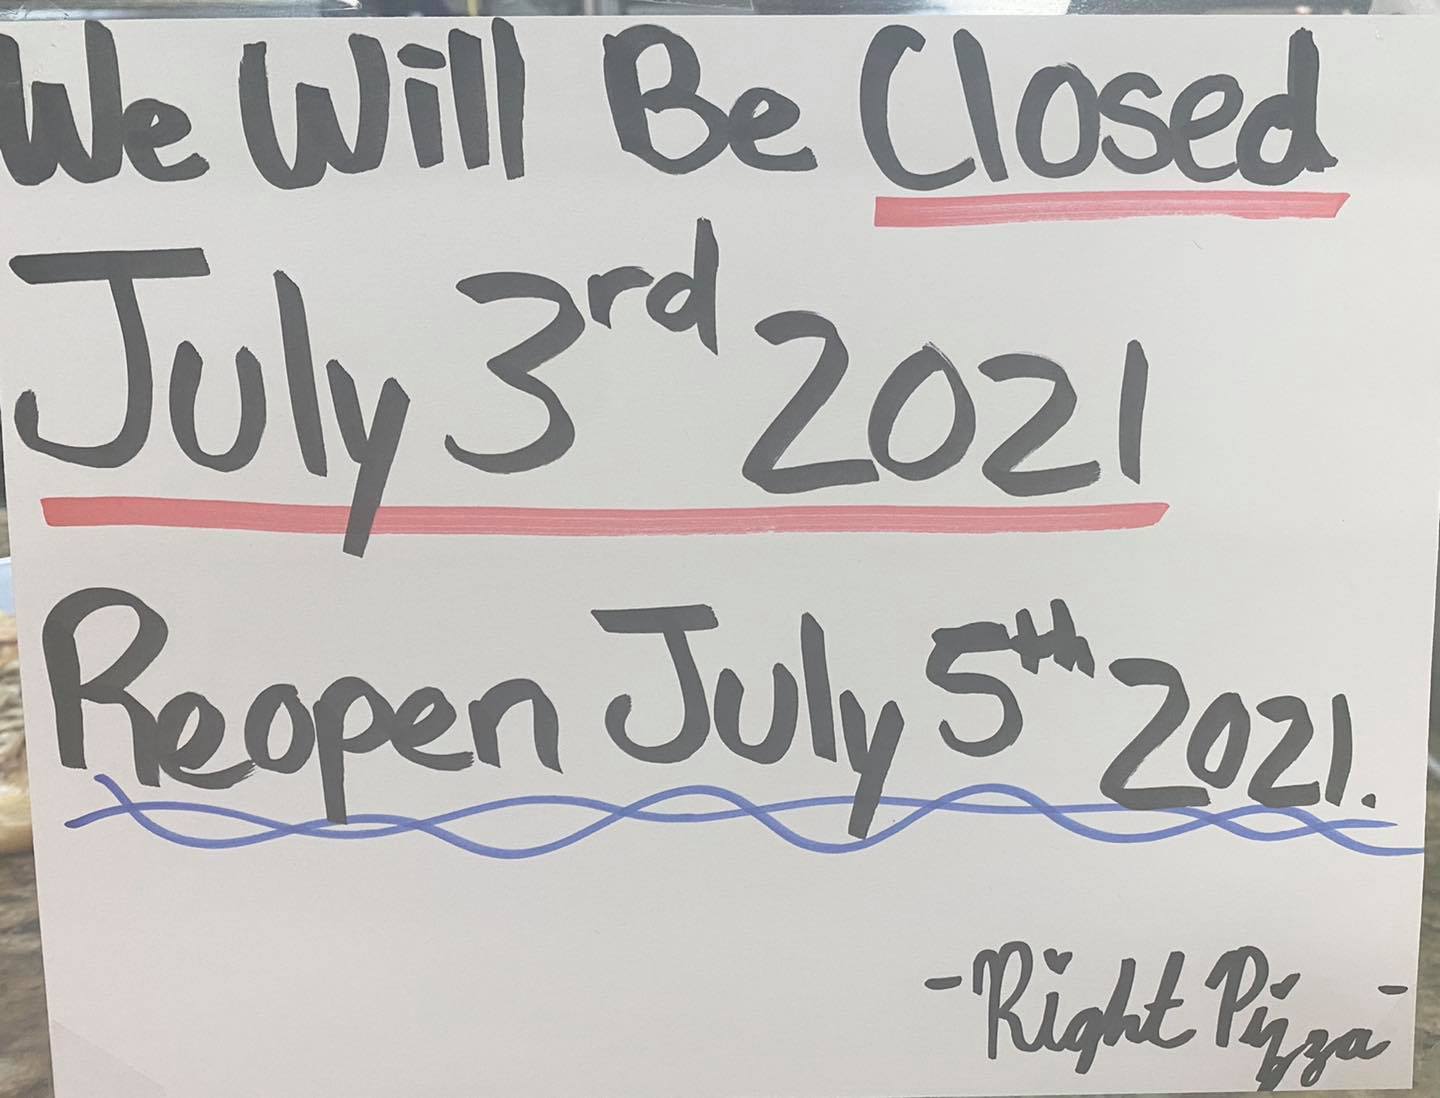 We Will Be Closed
July 3rd 2021
Reopen July 5th 2021.
-Right Pizza-